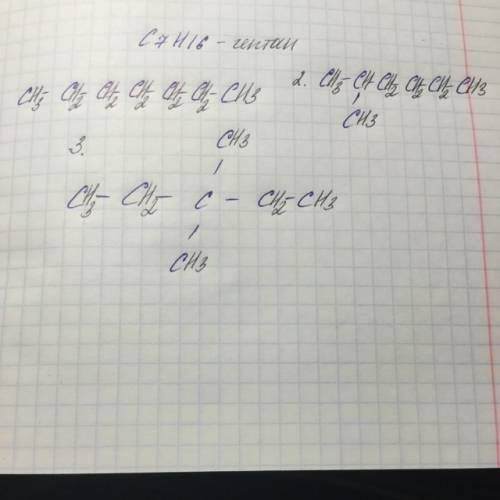 C7H16 - гептан
CH3- CH2- CH2- CH2- CH2- CH2- CH3
2. CH3- CH- CH2- CH2- CH2- CH3
CH3
3.
CH3
CH3- CH2- C - CH2- CH3
CH3